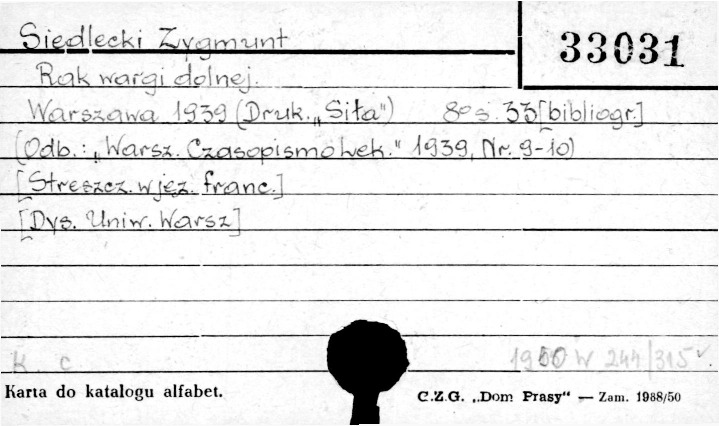 Siedlecki Zygmunt
33031
Rak wargi dolnej.
Warszawa 1939 (Druk. „Siła") 8° s. 33 [bibliogr.]
(Odb.: „Warsz. Czasopismo Lek." 1939, Nr. 9-10)
[Streszcz. w jęz. franc.]
[Dys. Uniw. Warsz]
K. c. 1950 W 244/315
Karta do katalogu alfabet.
C.Z.G. „Dom Prasy" — Zam. 1988/50